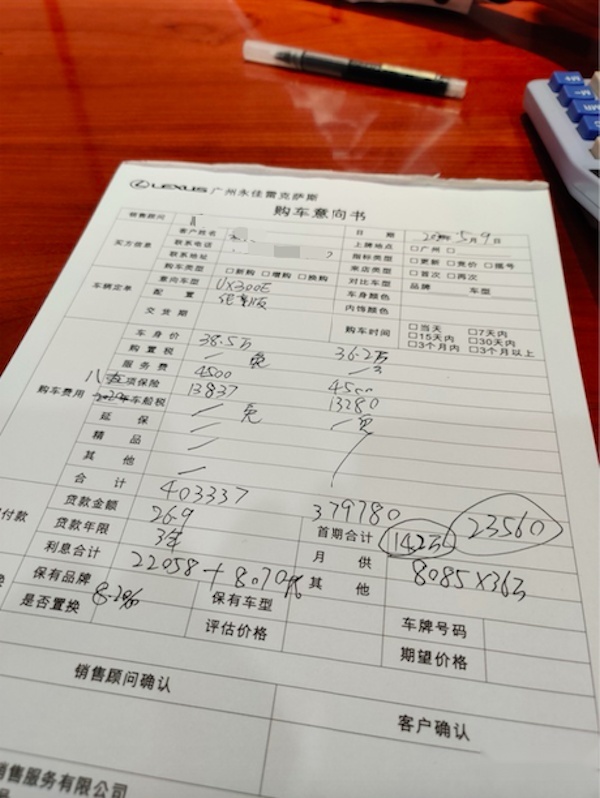 LEXUS 广州永佳雷克萨斯
购车意向书
销售顾问
日期 5月9日
买方信息
客户姓名 上牌地点 □广州 □
联系电话 指标类型 □更新 □竞价 □摇号
联系地址 来店类型 □首次 □再次
购车类型 □新购 □增购 □换购 对比车型 品牌 车型
车辆定单
意向车型 UX300E 车身颜色
配置 内饰颜色
交货期 购车时间 □当天 □7天内
□15天内 □30天内
□3个月内 □3个月以上
购车费用
车身价 38.5万 36.2万
购置税 / 免 /
服务费 4500 4500
项保险 13837 13280
车船税 / 免 / 免
延保 /
精品 /
其他 /
合计 403337 379780
付款
贷款金额 26.9 首期合计 14.2万 23560
贷款年限 3年 月供 8085×36
利息合计 22058+8070 其他
保有品牌 8.2% 保有车型 车牌号码
是否置换 评估价格 期望价格
销售顾问确认 客户确认
售服务有限公司